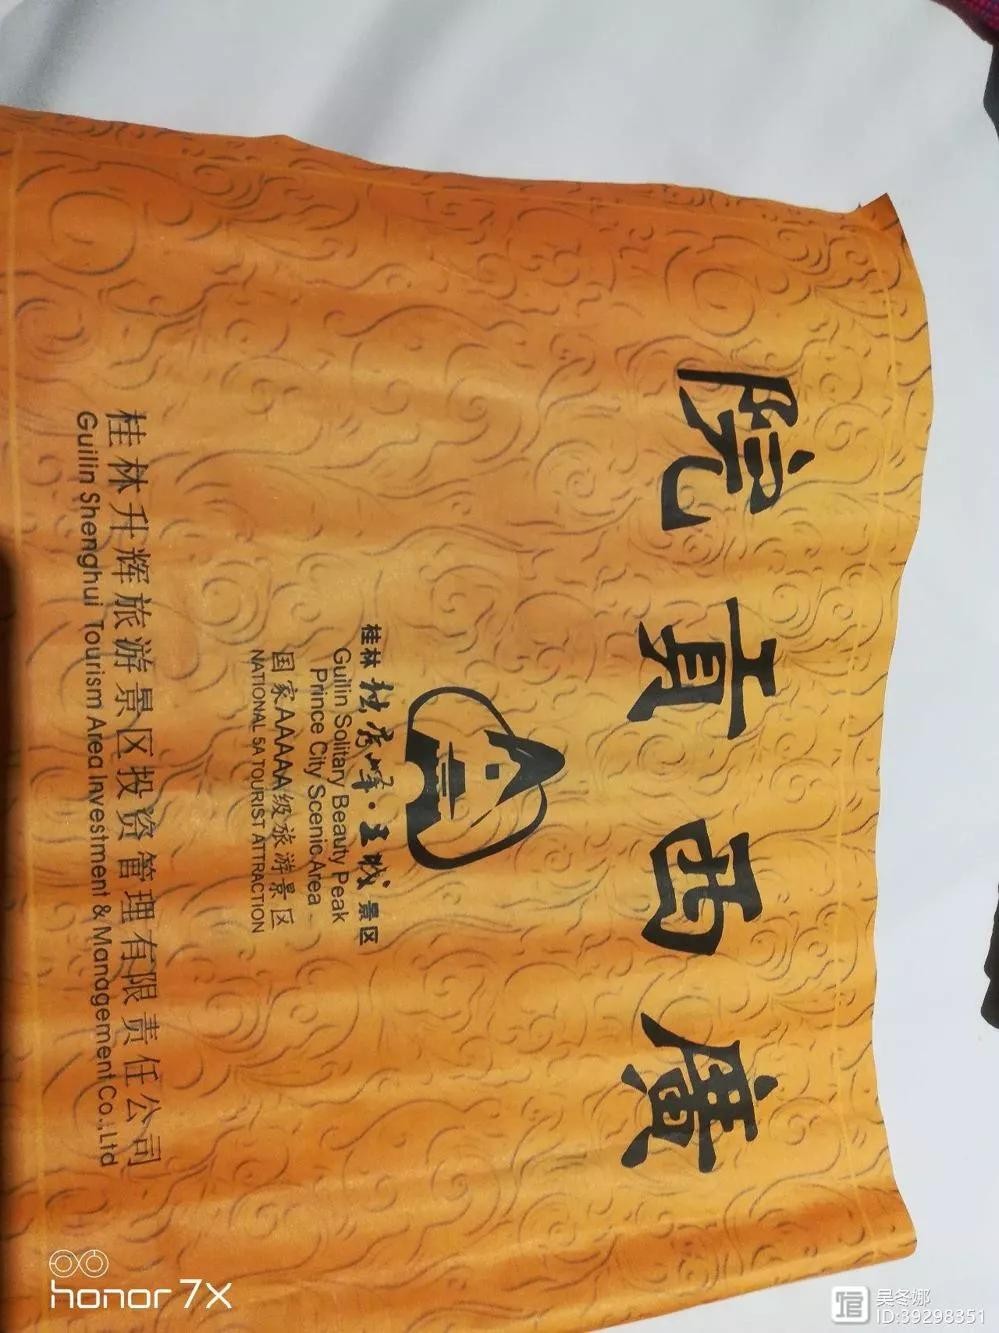 院貢西廣
桂林独秀峰·王城景区
Guilin Solitary Beauty Peak
Prince City Scenic Area
国家AAAAA级旅游景区
NATIONAL 5A TOURIST ATTRACTION
桂林升辉旅游景区投资管理有限责任公司
Guilin Shenghui Tourism Area Investment & Management Co.,Ltd
honor 7X
吴冬娜
ID:39298351